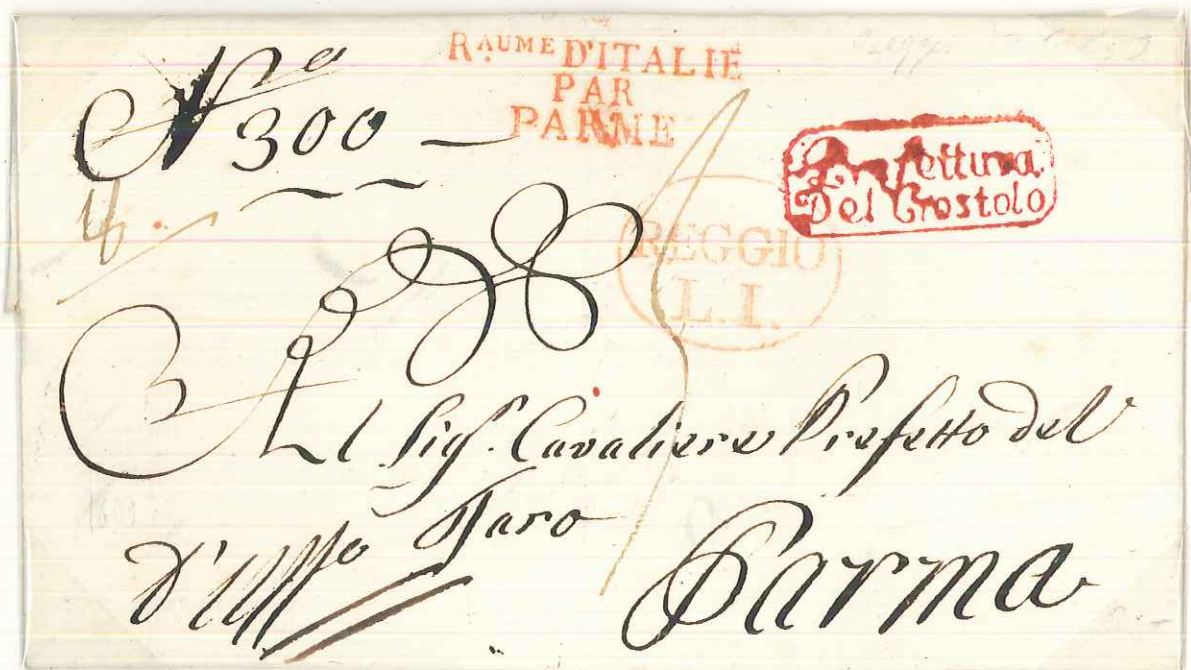 N.o 300 —
R.AUME D'ITALIE
PAR
PARME
Prefettura
Del Crostolo
REGGIO
L. I.
Al Sig.r Cavaliere Prefetto del
Taro
d'Uffo
Parma